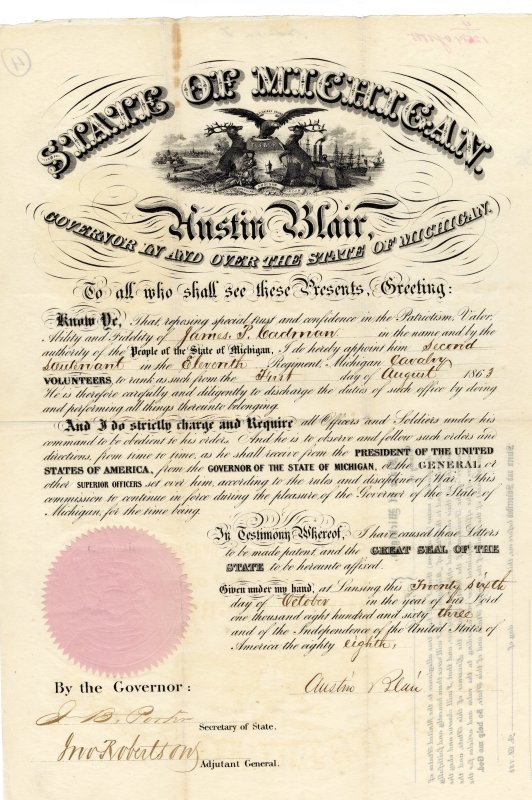 4
STATE OF MICHIGAN.
Austin Blair,
GOVERNOR IN AND OVER THE STATE OF MICHIGAN.
To all who shall see these Presents, Greeting:
Know Ye, That reposing special trust and confidence in the Patriotism, Valor,
Ability and Fidelity of James P. Cadman in the name and by the
authority of the People of the State of Michigan, I do hereby appoint him Second
Lieutenant in the Eleventh Regiment, Michigan Cavalry
VOLUNTEERS, to rank as such from the First day of August 1863
He is therefore carefully and diligently to discharge the duties of such office by doing
and performing all things thereunto belonging.
And I do strictly charge and Require all Officers and Soldiers under his
command to be obedient to his orders. And he is to observe and follow such orders and
directions, from time to time, as he shall receive from the PRESIDENT OF THE UNITED
STATES OF AMERICA, from the GOVERNOR OF THE STATE OF MICHIGAN, or the GENERAL or
other SUPERIOR OFFICERS set over him, according to the rules and discipline of War. This
commission to continue in force during the pleasure of the Governor of the State of
Michigan, for the time being.
In Testimony Whereof, I have caused these Letters
to be made patent, and the GREAT SEAL OF THE
STATE to be hereunto affixed.
Given under my hand, at Lansing this Twenty sixth
day of October in the year of our Lord
one thousand eight hundred and sixty three
and of the Independence of the United States of
America the eighty eighth,
By the Governor:
Austin Blair
Secretary of State.
Jno Robertson
Adjutant General.